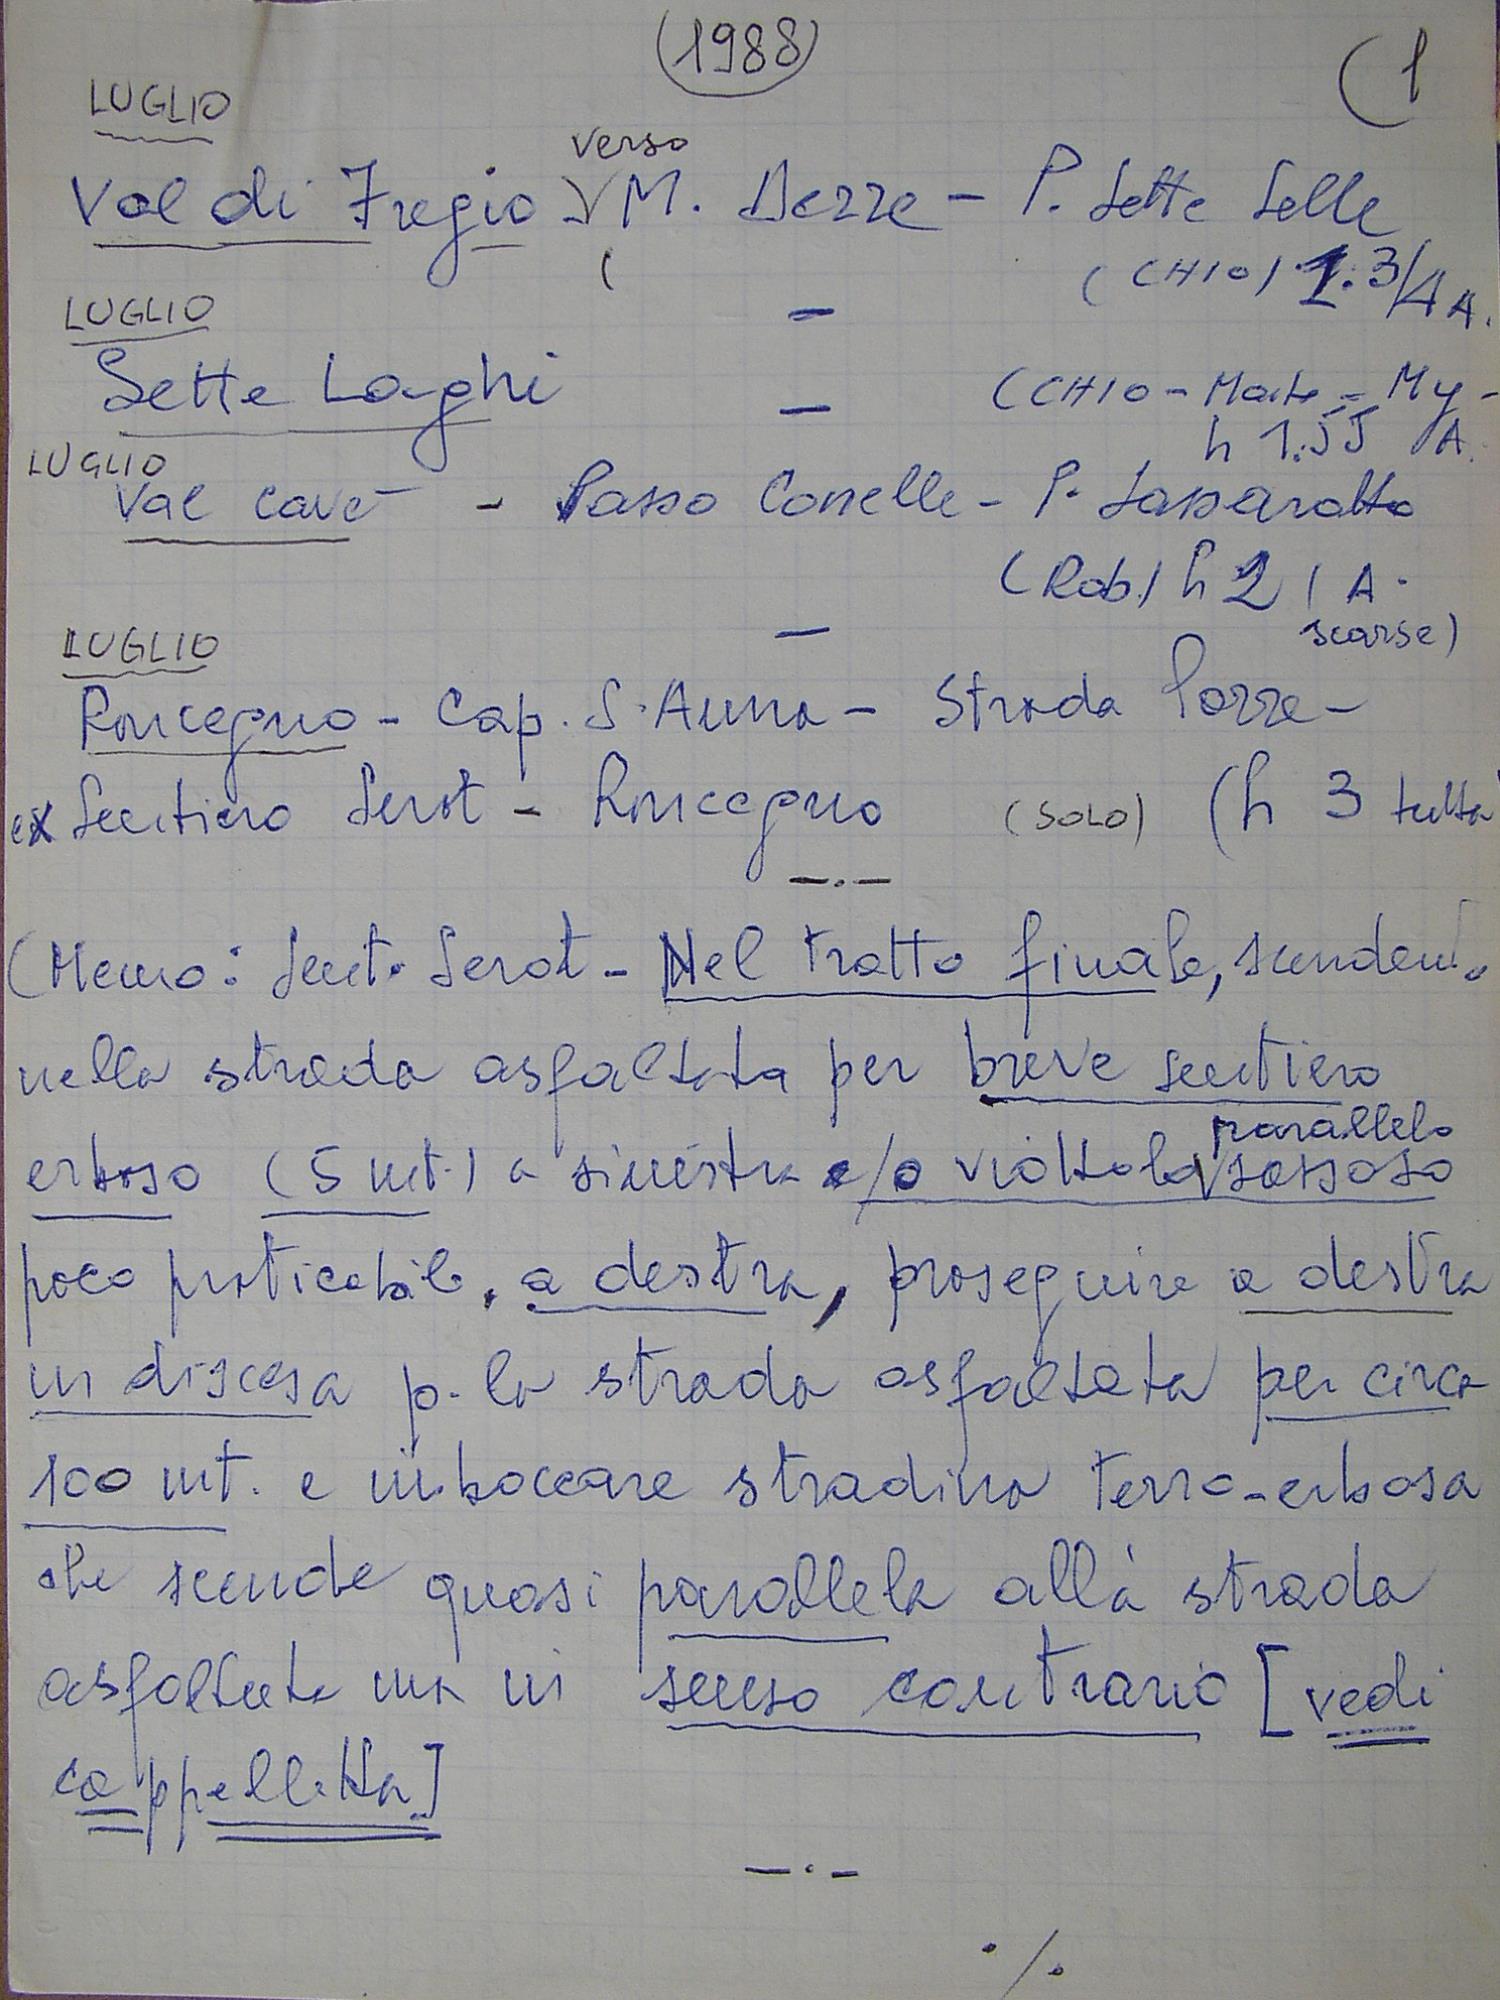 (1988)
(1
LUGLIO
verso
Val di Fregio M. Dezze - P. Sette Selle
(CHIO) 1.3/4 A.
LUGLIO
Sette Laghi - (CHIO - Marte - My -
h 1.55 A.
LUGLIO
Val cave - Passo Conelle - P. Sassarotto
(Rob) h 2 / A.
scarse)
LUGLIO
Roncegno - Cap. S. Anna - Strada Pozze -
ex Sentiero Serot - Roncegno (SOLO) (h 3 tutta
-.-
(Memo: Sent. Serot - Nel tratto finale, scendend.
nella strada asfaltata per breve sentiero
parallelo
erboso (5 mt.) a sinistra e/o viottolo sassoso
poco praticabile, a destra, proseguire a destra
in discesa p. la strada asfaltata per circa
100 mt. e imboccare stradina terro-erbosa
che scende quasi parallela alla strada
asfaltata ma in senso contrario [vedi
cappelletta]
-.-
./.